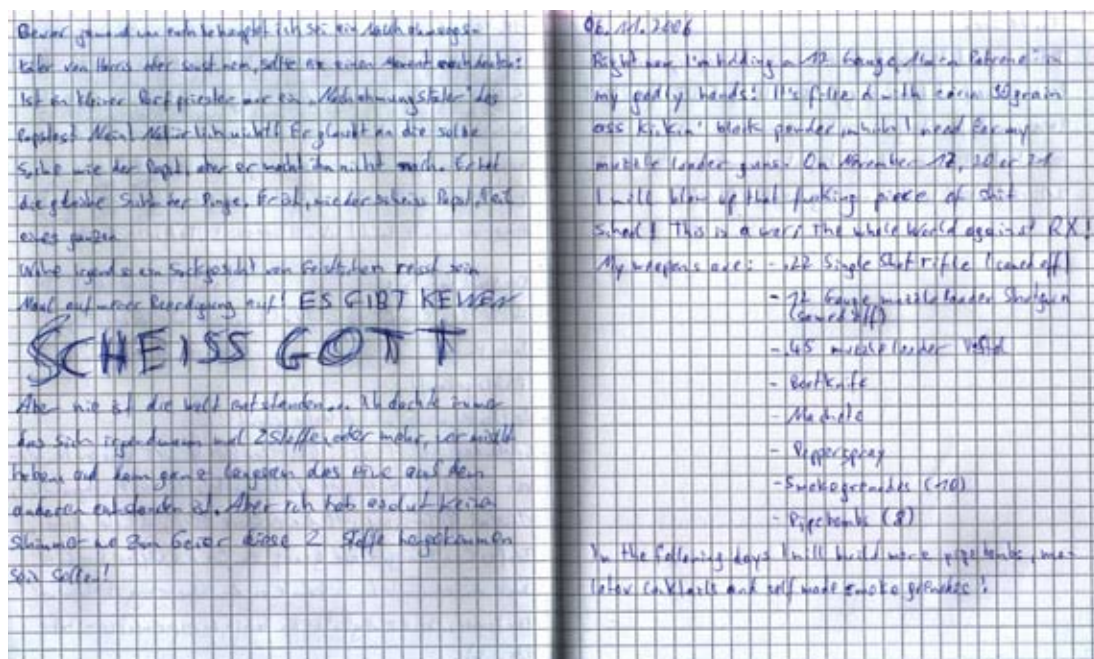 Bevor jemand von euch behauptet ich sei ein Nachahmungs
täter von Harris oder sonst wem, sollte er einen Moment nachdenken:
Ist ein kleiner Dorfpriester nur ein "Nachahmungstäter" des
Papstes? Nein! Natürlich nicht! Er glaubt an die selbe
Sache wie der Papst, aber er macht ihn nicht nach. Er hat
die gleiche Sicht der Dinge. Er ist, wie der scheiss Papst, Teil
eines ganzen
Wehe irgend so ein Sackgesicht von Geistlichem reisst sein
Maul auf meiner Beerdigung auf! ES GIBT KEINEN
SCHEISS GOTT
Aber wie ist die welt entstanden... Ich dachte immer
das sich irgendwann mal 2 Stoffe, oder mehr, vermischt
haben und dann ganz langsam das Eine aus dem
anderen entstanden ist. Aber ich hab keinen
Schimmer wo zum Geier diese 2 Stoffe hergekommen
sein sollen!
06.11.2006
Right now I'm holding a 12 Gauge in
my godly hands! It's filled with 30grain
ass kickin' black powder, which I need for my
muzzle loader guns. On November 17, 20 or 21
I will blow up that fucking piece of shit
school! This is a war; The whole World against RX!
My weapons are: - .22 Single Shot rifle (sawed off)
- 12 Gauge muzzleloader Shotgun
(sawed off)
- .45 muzzleloader
- Bootknife
- Machete
- Pepperspray
- Smokegrenades (10)
- Pipebombs (8)
In the following days I will build more pipebombs, mo-
lotov cocktails and self made smoke grenades!